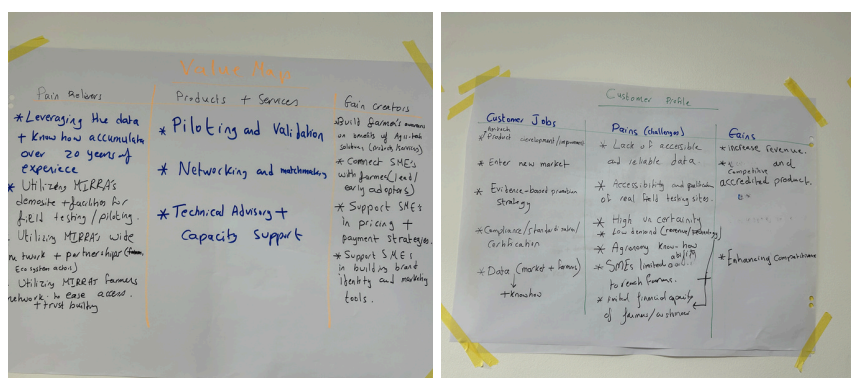 Value Map
Pain Relievers
*Leveraging the data
+ Know how accumulata
over 20 years of
experiece
* Utilizing MIRRA's
demosite + facilities for
field testing / piloting.
. Utilizing MIRRA's wide
network + partnerships
Eco system actors)
. Utilizing MIRRA's farmers
network to ease access.
+ trust building
Products + Services
* Piloting and Validation
* Networking and matchmaking
* Technical Advisory +
Capacity Support
Gain creators
Build farmer's
on benefits of Agri-tech
solutions
* Connect SME's
with farmer (lead/
early adopters)
* Support SME's
in pricing +
payment strategies.
* Support SMEs
in building brand
identity and marketing
tools.
Customer Profile
Customer Jobs
* Product development/
* Enter new market
* Evidence-based
strategy
* Compliance/
Certification
* Data (market + farms)
+ Knowhow
Pains (challenges)
* Lack of accessible
and reliable data.
* Accessibility and
of real field testing sites.
* High un certainity
* Low demand (revenue/
* Agronomy know-how
* SMEs limited ability
to reach farmers.
* financial capacity
of farmer/customer
Gains
* increase revenue.
* and
competitive
accredited product.
* Enhancing